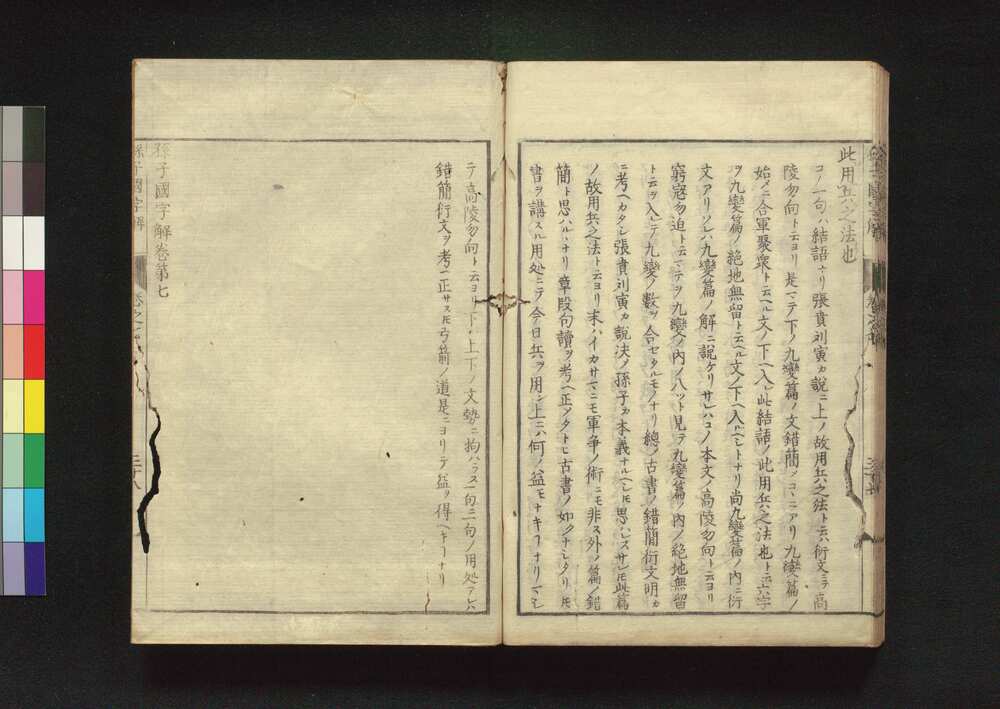 此用兵之法也
コノ一句ハ結語ナリ張賁刘寅カ説ニ上ノ故用兵之法ト云ハ衍文ニテ高
陵勿向ト云ヨリ是マテ下ノ九變篇ノ文錯簡メコヽニアリ九變篇ノ
始メニ合軍聚衆ト云ヘル文ノ下ヘ入レ此結語ノ此用兵之法也ト云六字
ヲ九變篇ノ絶地無留ト云ヘル文ノ下ヘ入ルヘシトナリ尚九變篇ノ内ニ衍
文アリソレハ九變篇ノ解ニ説ケリサレハコノ本文ノ高陵勿向ト云ヨリ
窮寇勿迫ト云マテヲ九變ノ内ノ八ツト見テ九變篇ノ内ノ絶地無留
ト云ヲ入レテ九變ノ數ヲ合セタルモノナリ總メ古書ノ錯簡衍文明カ
ニ考ヘカタシ張賁刘寅カ説决メ孫子カ本義ナルヘシ𪜈思ハレスサレ𪜈此篇
ノ故用兵之法ト云ヨリ末ハイカサマニモ軍争ノ術ニモ非ス外ノ篇ノ錯
簡ト思ハルヽナリ章段句讀ヲ考ヘ正シタトヒ古書ノ如クナシタリ𪜈
書ヲ講スル用処ニテ今日兵ヲ用ン上ニハ何ノ益モナキヿナリマシ
テ高陵勿向ト云ヨリ下ハ上下ノ文勢ニ拘ハラス一句二句ノ用処ナレハ
錯簡衍文ヲ考ヘ正サス𪜈弓箭ノ道是ニヨリテ益ヲ得ヘキヿナリ
孫子國字解卷第七
孫子國字解
三十八